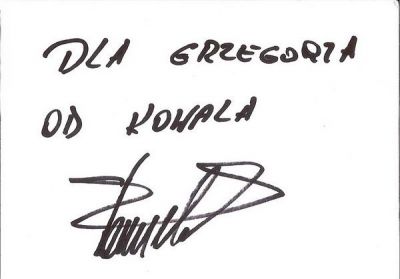 DLA GRZEGORZA
OD KOWALA